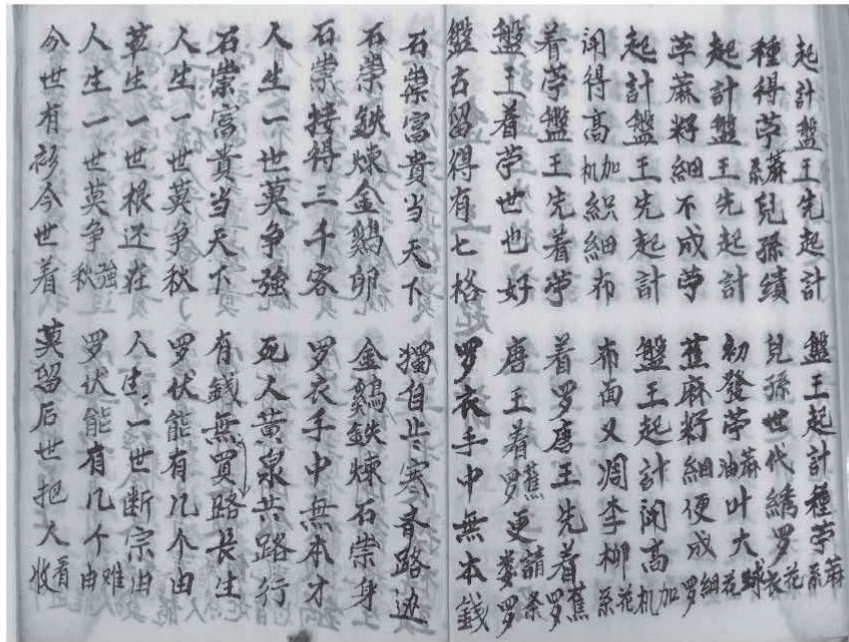 起計盤王先起計 盤王起計種苧蔴系
種得苧蔴系兒孫績 兒孫世代綉罗花衣
起計盤王先起計 初發苧蔴油叶大球花
苧蔴籽細不成苧 蕉麻籽細便成罗細
起計盤王先起計 盤王起計闭高加机
闭得高加机織細布 布面又凋李柳花系
着苧盤王先着苧 着罗唐王先着蕉罗
盤王着苧世也好 唐王着蕉罗更
盤古留得有七格 罗衣手中無本錢
石崇富貴当天下 獨自寒春路边
石崇鉄煉金鷄卵 金鷄鉄煉石崇身
石崇接得三千客 罗衣手中無本才
人生一世莫争強 死人黄泉共路行
石崇富貴当天下 有錢無買路長生
人生一世莫争秋 罗伏能有几个由
草生一世根还在 人生一世断宗由
人生一世莫争強秋 罗伏能有几个难由
今世有衫今世着 莫留后世把人看收